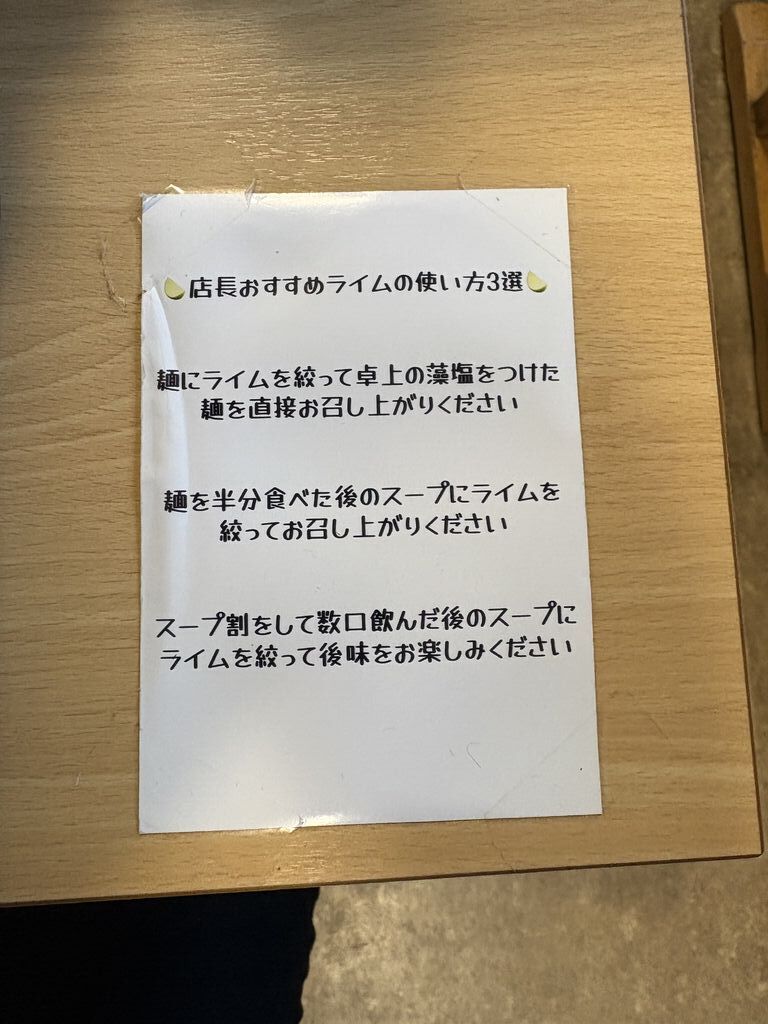 🍋店長おすすめライムの使い方3選🍋
麺にライムを絞って卓上の藻塩をつけた
麺を直接お召し上がりください
麺を半分食べた後のスープにライムを
絞ってお召し上がりください
スープ割をして数口飲んだ後のスープに
ライムを絞って後味をお楽しみください